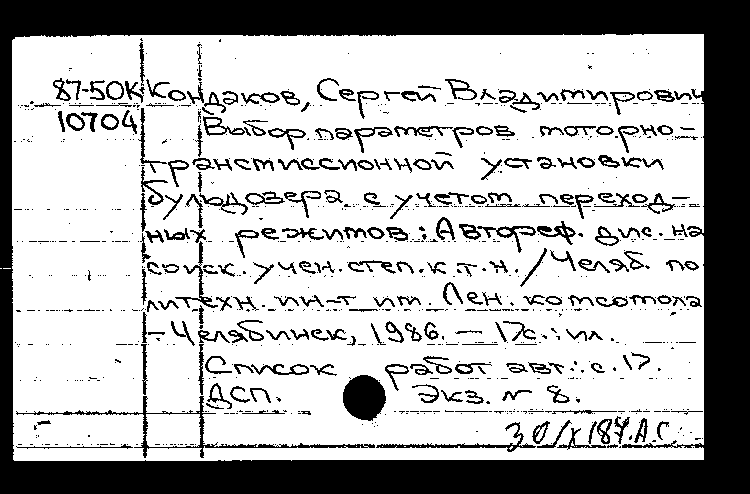 87-50К Кондаков, Сергей Владимирович
10704 Выбор параметров моторно-
трансмиссионной установки
бульдозера с учетом переход-
ных режимов: Автореф. дис. на
соиск. учен. степ. к.т.н. / Челяб. по
литехн. ин-т им. Лен. комсомола
- Челябинск, 1986. - 17с.: ил.
Список работ авт.: с. 17.
ДСП. Экз. № 8.